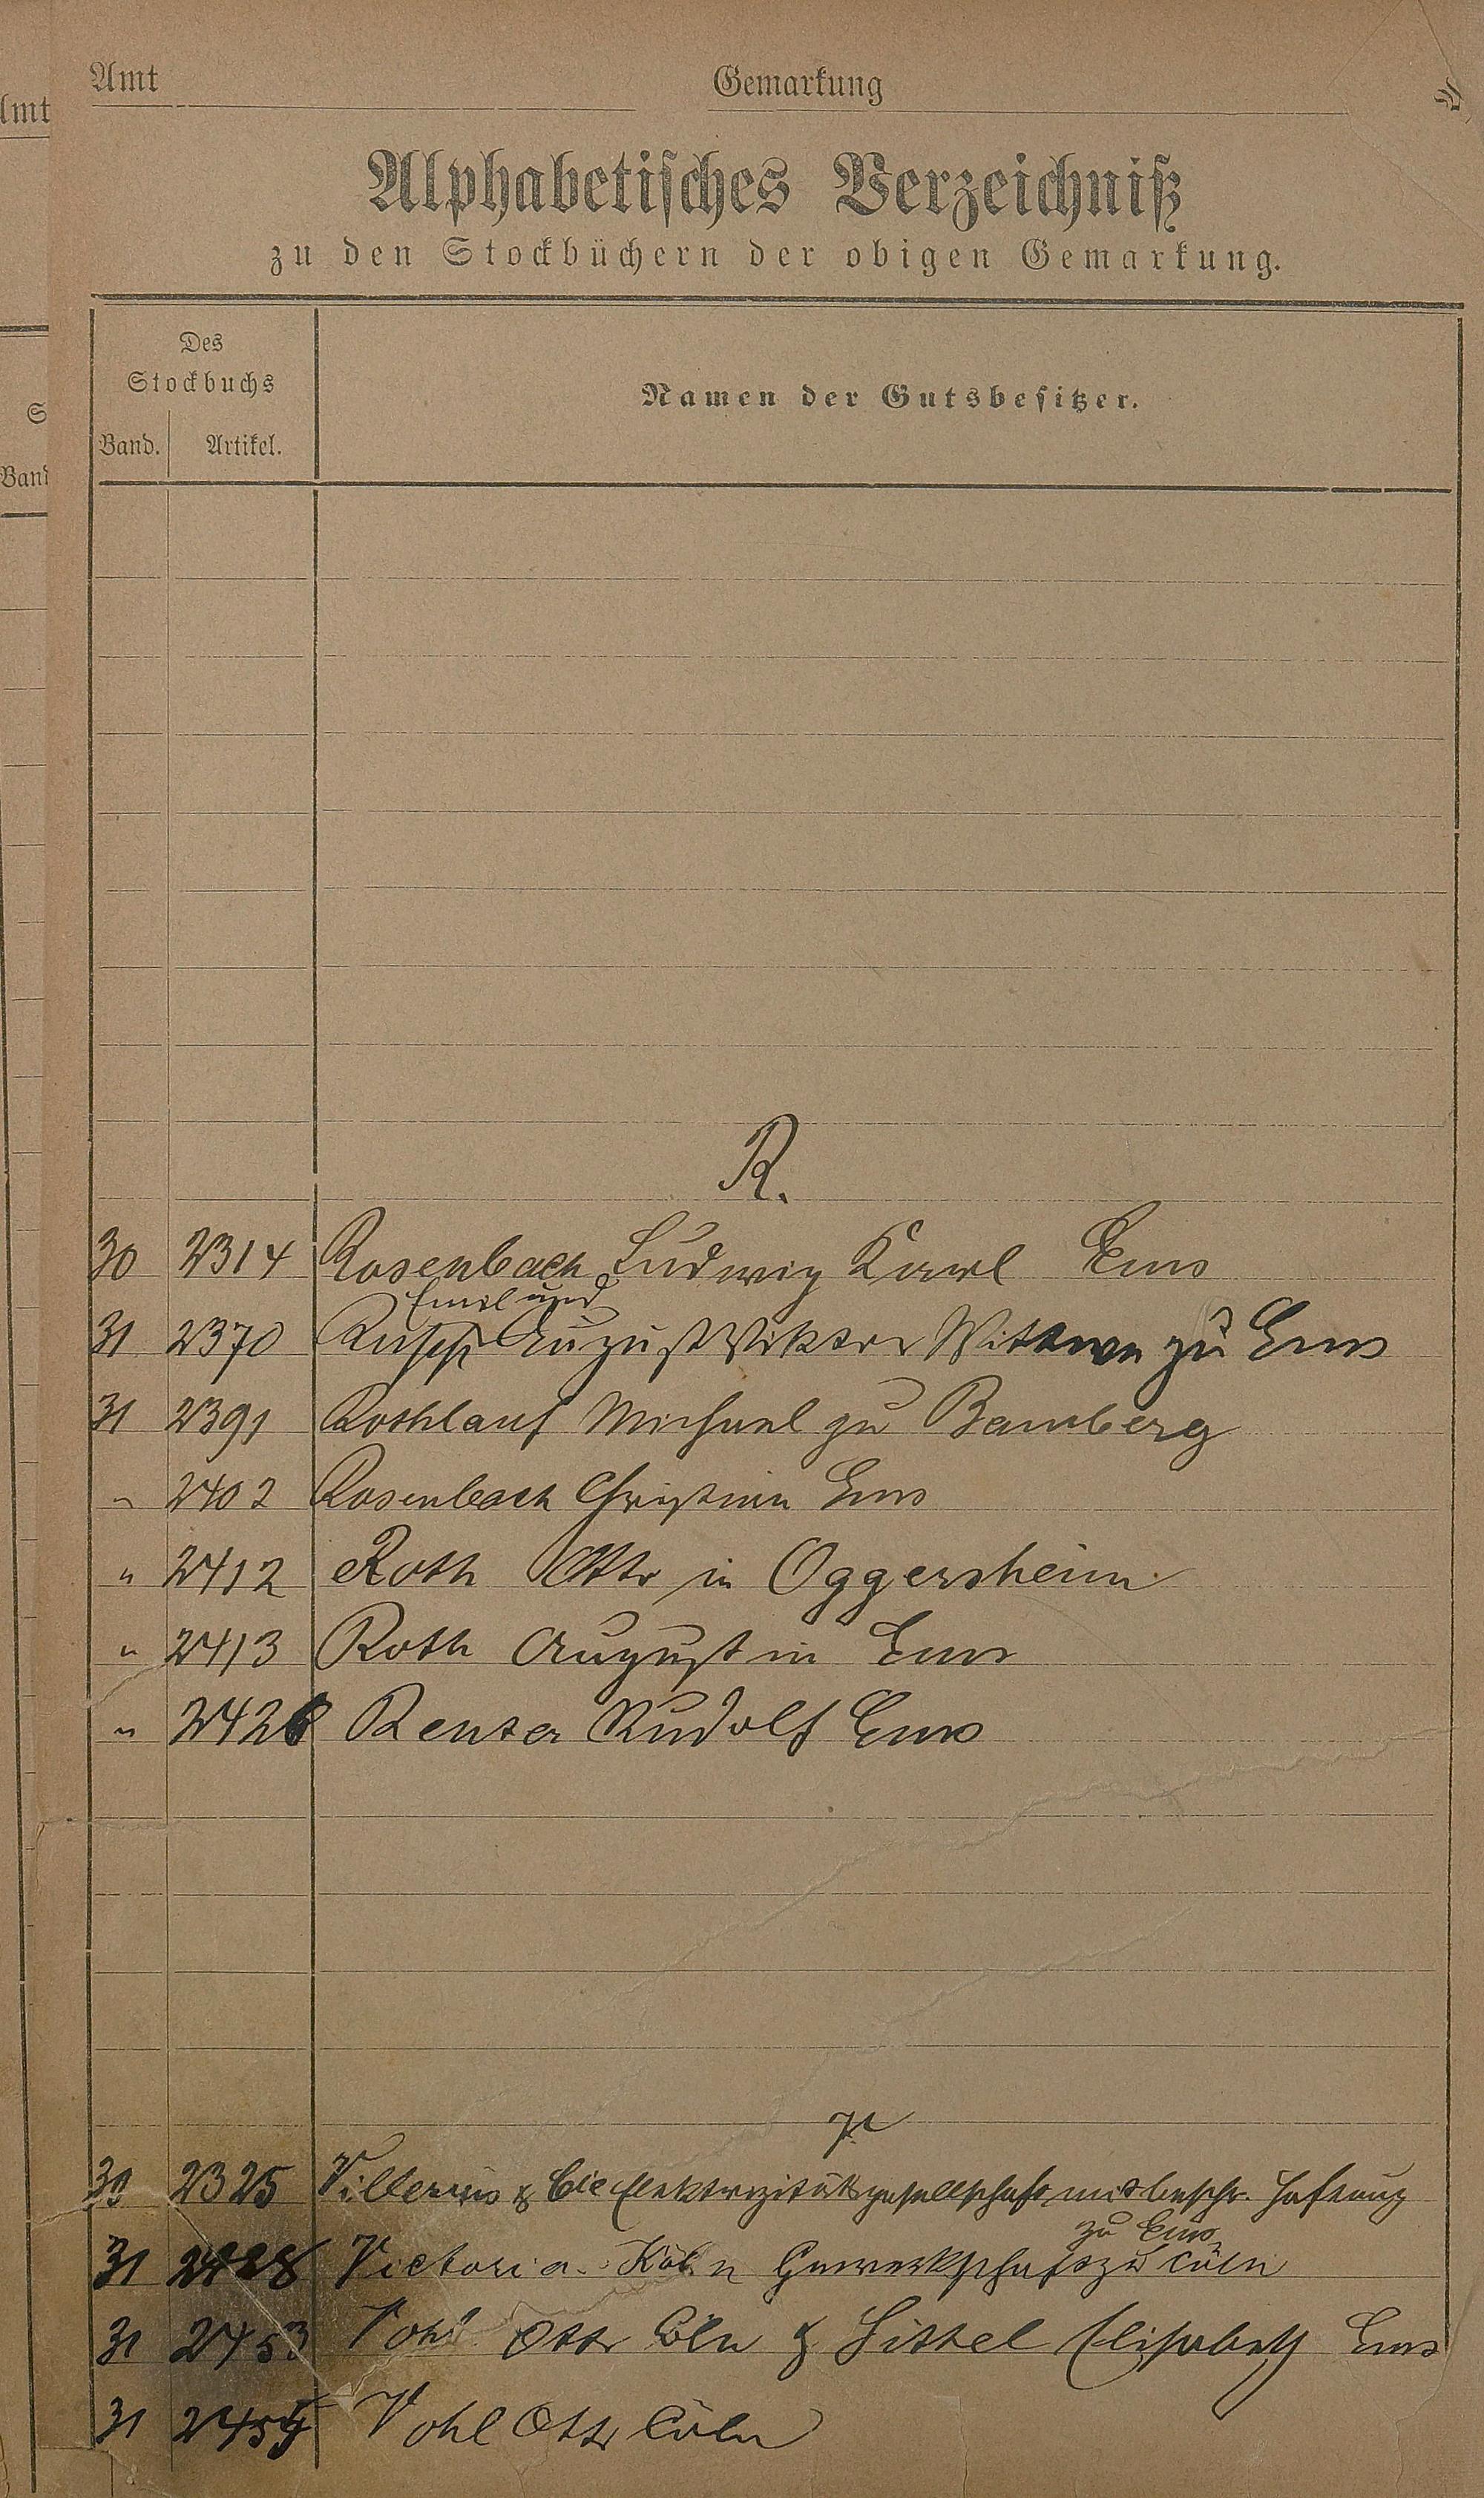 Amt Gemarkung
Alphabetisches Verzeichniß
zu den Stockbüchern der obigen Gemarkung.
Des
Stockbuchs
Namen der Gutsbesitzer.
Band. Artikel.
R.
30 2314 Rosenbach Ludwig Karl Ems
Emil und
31 2370 August Viktor Wittwe zu Ems
31 2391 Rothlauf Michael zu Bamberg
" 2402 Rosenbach Christian Ems
" 2412 Roth Otto in Oggersheim
" 2413 Roth August in Ems
" 2426 Renter Rudolf Ems
V
30 2325 & Cie Elektrizitätsgesellschaft mit beschr. Haftung
zu Ems
31 2428 Victoria Köln Gewerkschaft zu Cöln
31 2453 Vohl Otto Cöln & Sittel Elisabeth Ems
31 2454 Vohl Otto Cöln